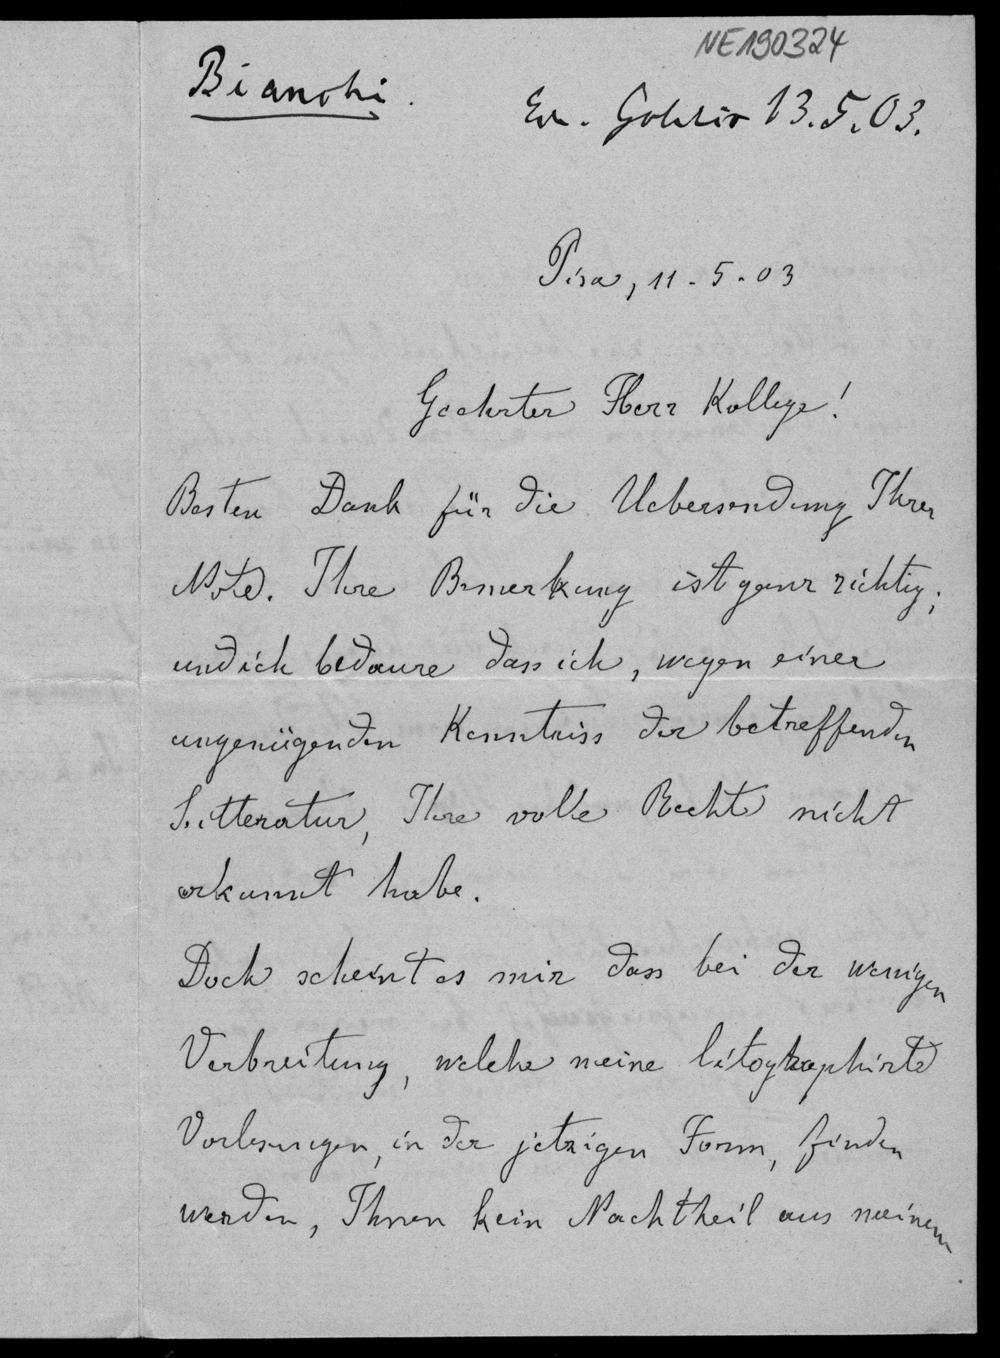 NE190324
Bianchi.
Er. Gohlis 13.5.03.
Pisa, 11-5-03
Geehrter Herr Kollege!
Besten Dank für die Uebersendung Ihrer
Note. Ihre Bemerkung ist ganz richtig;
und ich bedaure dass ich, wegen einer
ungenügenden Kenntniss der betreffenden
Litteratur, Ihre volle Recht nicht
erkannt habe.
Doch scheint es mir dass bei der wenigen
Verbreitung, welche meine litographirte
Vorlesungen, in der jetzigen Form, finden
werden, Ihnen kein Nachtheil aus meinem